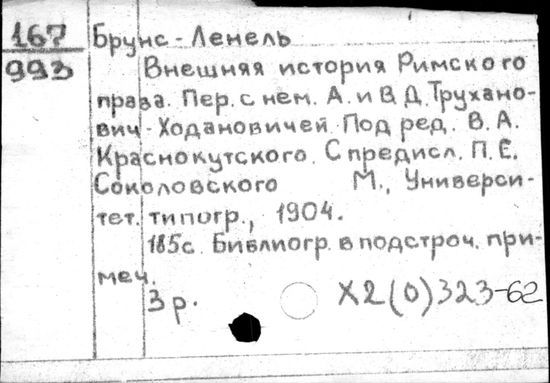 167 Брунс - Ленель
993 Внешняя история Римского
права. Пер. с нем. А. и В. Д. Трухано-
вич-Ходановичей. Под ред. В. А.
Краснокутского. С предисл. П. Е.
Соколовского М., Универси-
тет. типогр., 1904.
185с. Библиогр. в подстроч. при-
меч.
3 р. X2(0)323-62